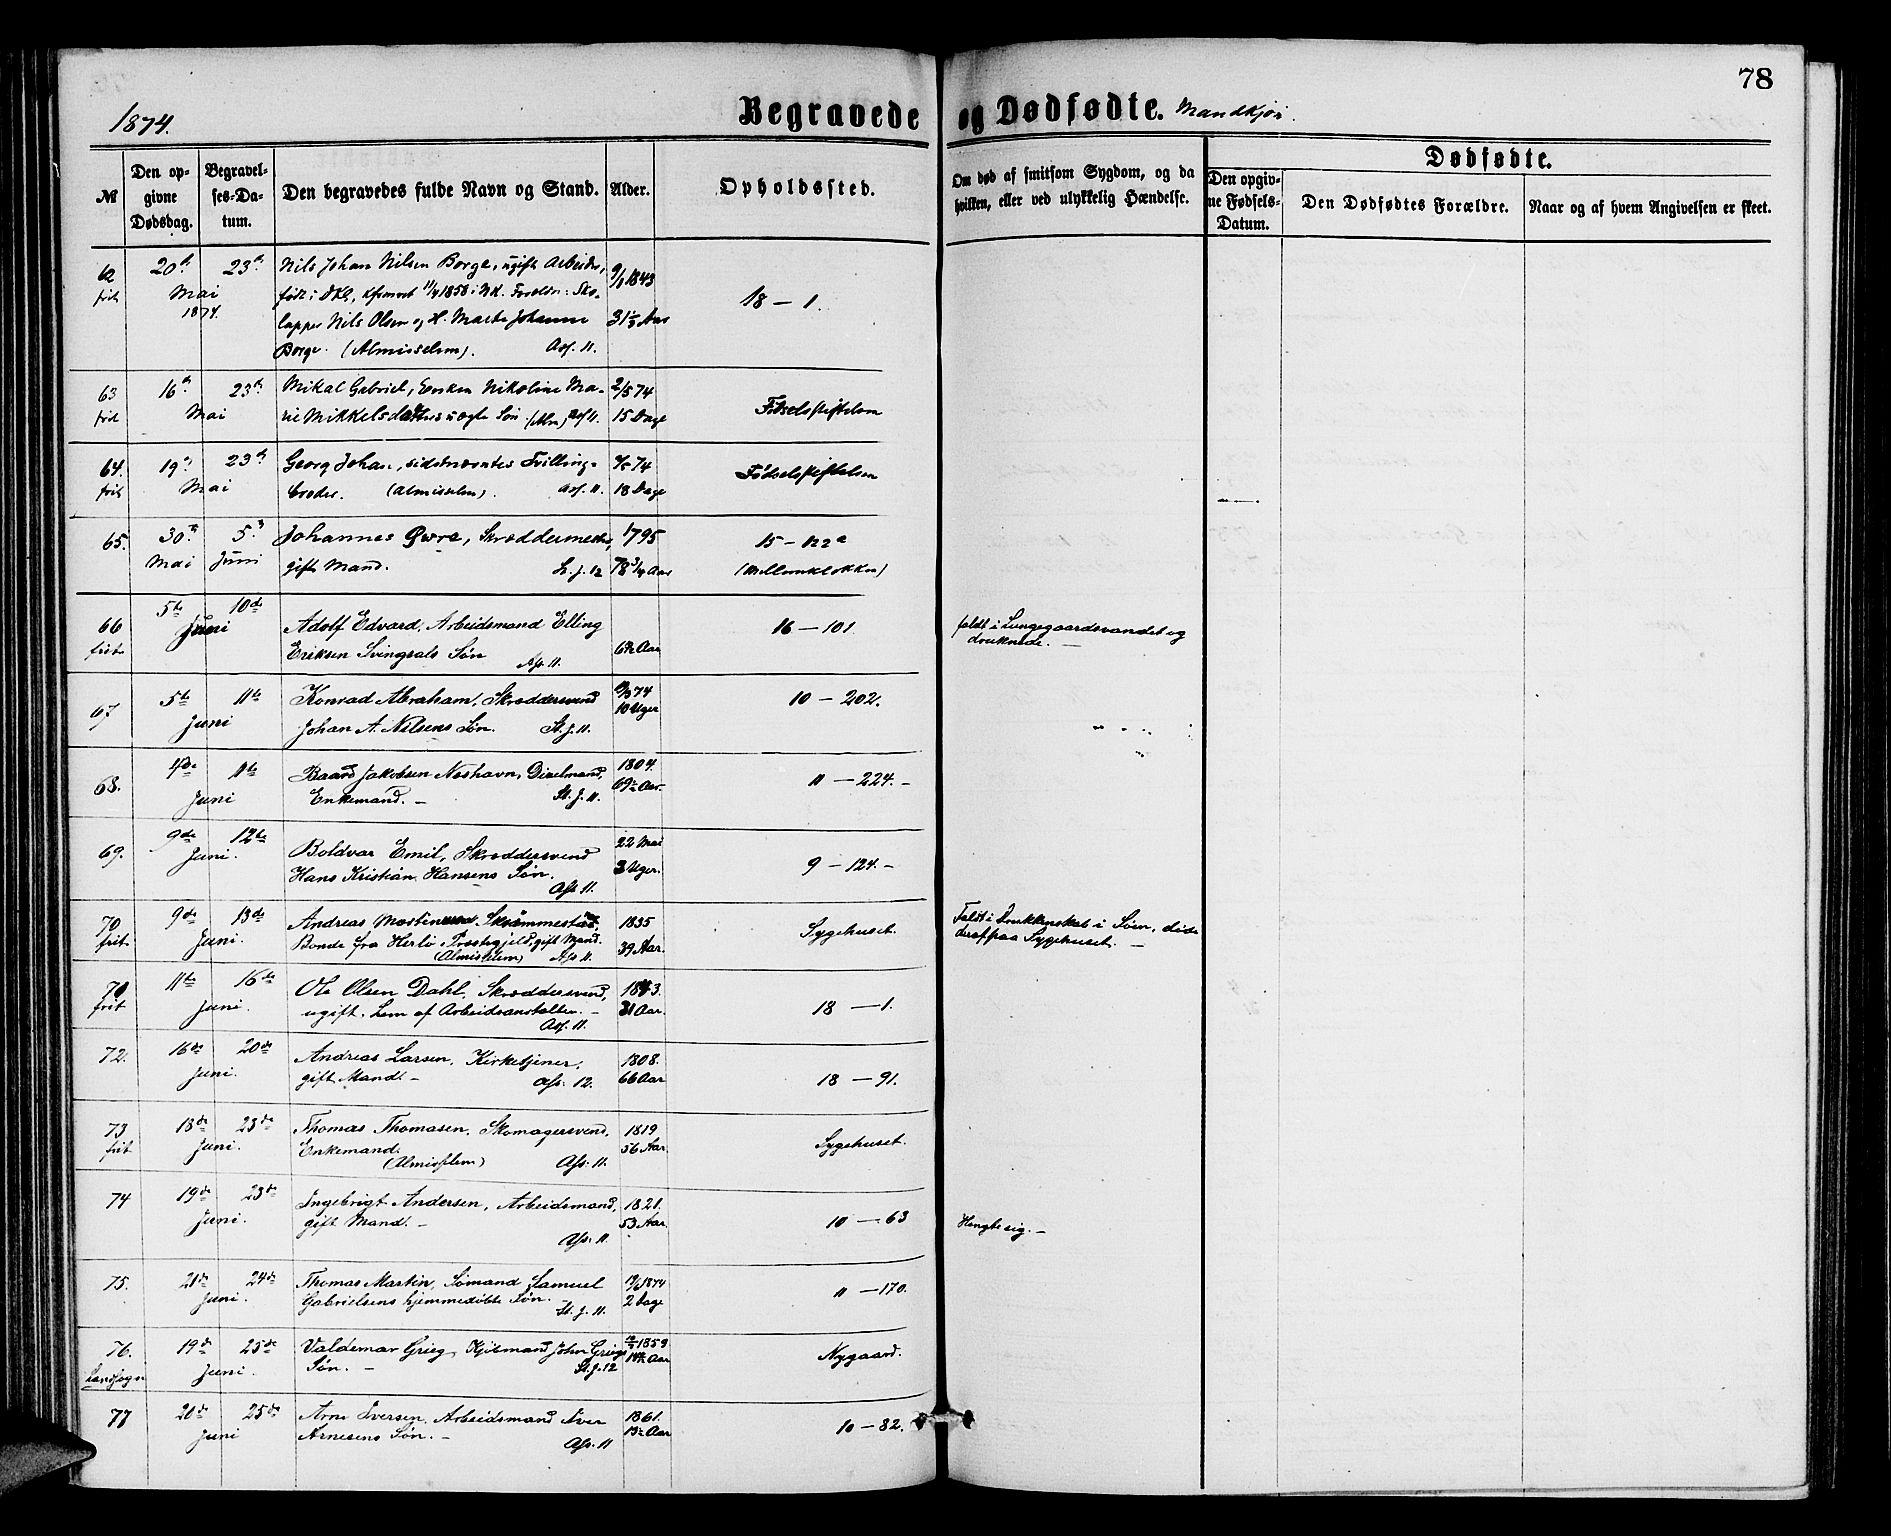 78
1874.
Begravede og Dødfødte. Mandkjøn.
№
Den opgivne Dødsdag.
Begravelses-Datum.
Den begravedes fulde Navn og Stand.
Alder.
Opholdssted.
Om død af smitsom Sygdom, og da hvilken, eller ved ulykkelig Hændelse.
Dødfødte.
Den opgivne Fødsels-Datum.
Den Dødfødtes Forældre.
Naar og af hvem Angivelsen er skeet.
62 frit 20de 23de Mai 1874.
Nils Johan Nilsen Borge, ugift Arbeider,
født i Dkl, Kfrmert 11/4 1858 i Nk. Forældre: Sko-
lapper Nils Olsen og H. Marte Johanne
Borge. (Almisselem). Ass. 11.
1843
31 1/3 Aar
18 — 1.
63 frit 16de 23de Mai
Mikal Gabriel, Enken Nikoline Ma-
rie Mikkelsdatters uægte Søn. (Alm) Ass. 11.
2/5 74
15 Dage
Fødselsstiftelsen
64. frit 19de 23de Mai
Georg Johan, sidstnævntes Tvilling-
broder. (Almisselem). Ass. 11.
74
18 Dage
Fødselsstiftelsen
65. 30te Mai 5te Juni
Johannes Øvre, Skræddermester,
gift Mand. St. J. 12
1795
78 3/4 Aar
15 — 122a
(Møllenkløkken)
66 frit 5te 10de Juni
Adolf Edvard, Arbeidsmand Elling
Eriksen Svingsals Søn Ass. 11.
6 1/2 Aar
16 — 101
faldt i Lungegaardsvandet og
druknede. —
67 5te 11te Juni
Konrad Abraham, Skræddersvend
Johan A. Nilsens Søn. St. J. 11.
74
10 Uger
10 — 202.
68. 4de 11te Juni
Baard Jakobsen Neshavn, Dixelmand,
Enkemand. — St. J. 11.
1804.
69 1/2 Aar
11 — 224. —
69. 9de 12te Juni.
Boldvar Emil, Skræddersvend
Hans Kristian Hansens Søn. Ass. 11.
22 Mai
3 Uger.
9 — 124. —
70 frit. 9de 13de Juni.
Andreas Mortensen Skrammestad,
Bonde fra Herlø Præstegjeld, gift Mand.
(Almisselem) Ass. 11.
1835
39 Aar.
Sygehuset.
Faldt i Drukkenskab i Søen, døde
deraf paa Sygehuset. —
70 frit 11te 16de Juni.
Ole Olsen Dahl, Skræddersvend,
ugift. Lem af Arbeidsanstalten. —
Ass. 11.
1843.
31 Aar.
18 — 1.
72. 16de 20de Juni.
Andreas Larsen, Kirketjener,
gift Mand. — Ass. 12.
1808.
66 Aar
18 — 91.
73 frit 18de 23de Juni.
Thomas Thomasen, Skomagersvend,
Enkemand.
(Almisselem) Ass. 11.
1819
56 Aar.
Sygehuset.
74 19de 23de Juni.
Ingebrigt Andersen, Arbeidsmand,
gift Mand. —
Ass. 11
1821.
53 Aar.
10 — 63
Hengte sig. —
75. 21de 24de Juni.
Thomas Martin, Sømand Samuel
Gabrielsens hjemmedøbte Søn. —
St. J. 11.
19/6 1874
2 Dage
11 — 170.
76. Landsogn 19de 25de Juni.
Valdemar Grieg, Kjøbmand John Griegs
Søn. — St. J. 12
1859
14 1/2 Aar
Nygaard.
77 20de 25de Juni
Arne Iversen, Arbeidsmand Iver
Arnesens Søn. — Ass. 11
1861.
13 1/2 Aar
10 — 82.